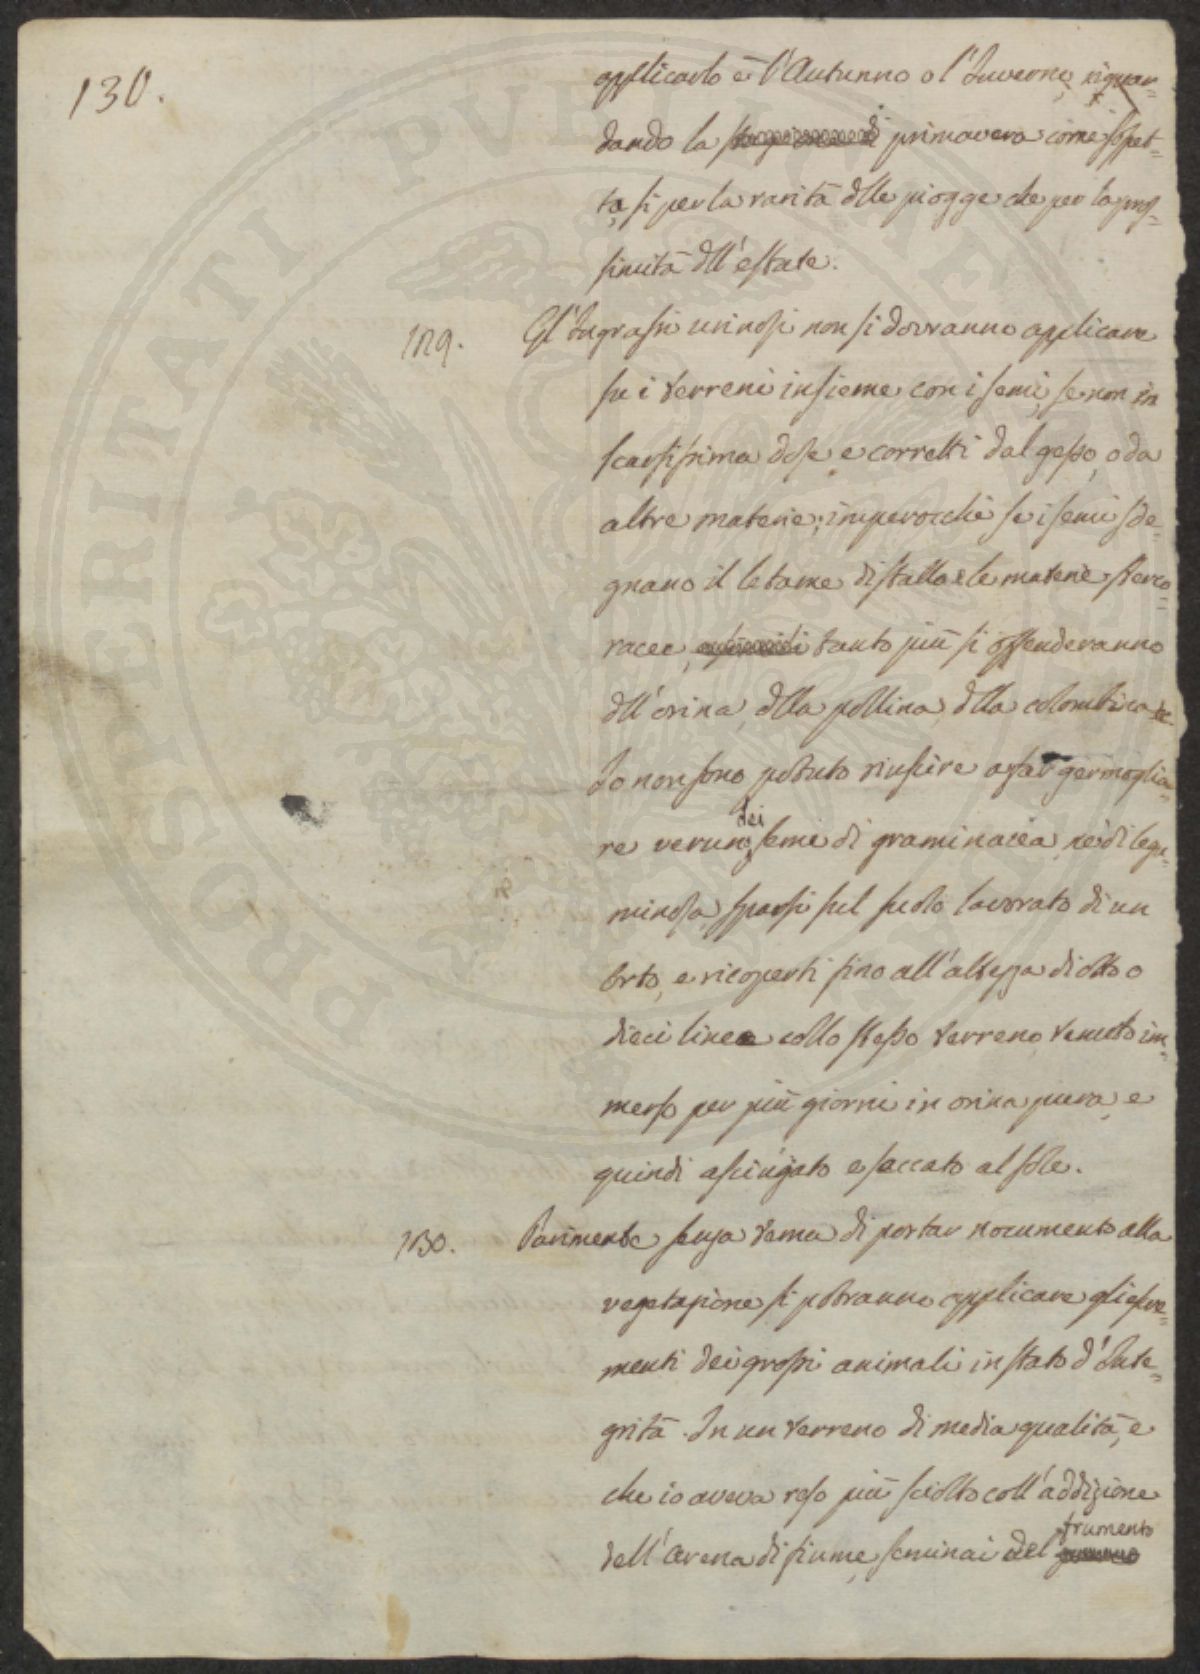 130.
applicarlo è l'Autunno o l'Inverno, riguar=
dando la primavera come sospet=
ta, si per la rarità dlle piogge che per la pros=
simità dll'estate.
129. Gl'Ingrassi urinosi non si dovranno applicare
su i terreni insieme con i semi, se non in
scarsissima dose e corretti dal gesso, o da
altre materie; imperocchè se i semi sde=
gnano il letame di stalla e le materie sterco=
racee, tanto più si offenderanno
dll'orina, dlla pollina, dlla colombina
Io non sono potuto riuscire a far germoglia=
re veruno dei semi di graminacea, nè di legu=
minosa, sparsi sul suolo lavorato di un
orto, e ricoperti sino all'altezza di otto o
dieci linee collo stesso terreno, tenuto im=
merso per più giorni in orina pura, e
quindi asciugato e seccato al sole.
130. Parimente senza tema di portar nocumento alla
vegetazione si potranno applicare gli escre=
menti dei grossi animali in stato d'Inte=
grità. In un terreno di media qualità, e
che io aveva reso più sciolto coll'addizione
dell'arena di fiume, seminai del frumento
PROSPERITATI PVBLICAE